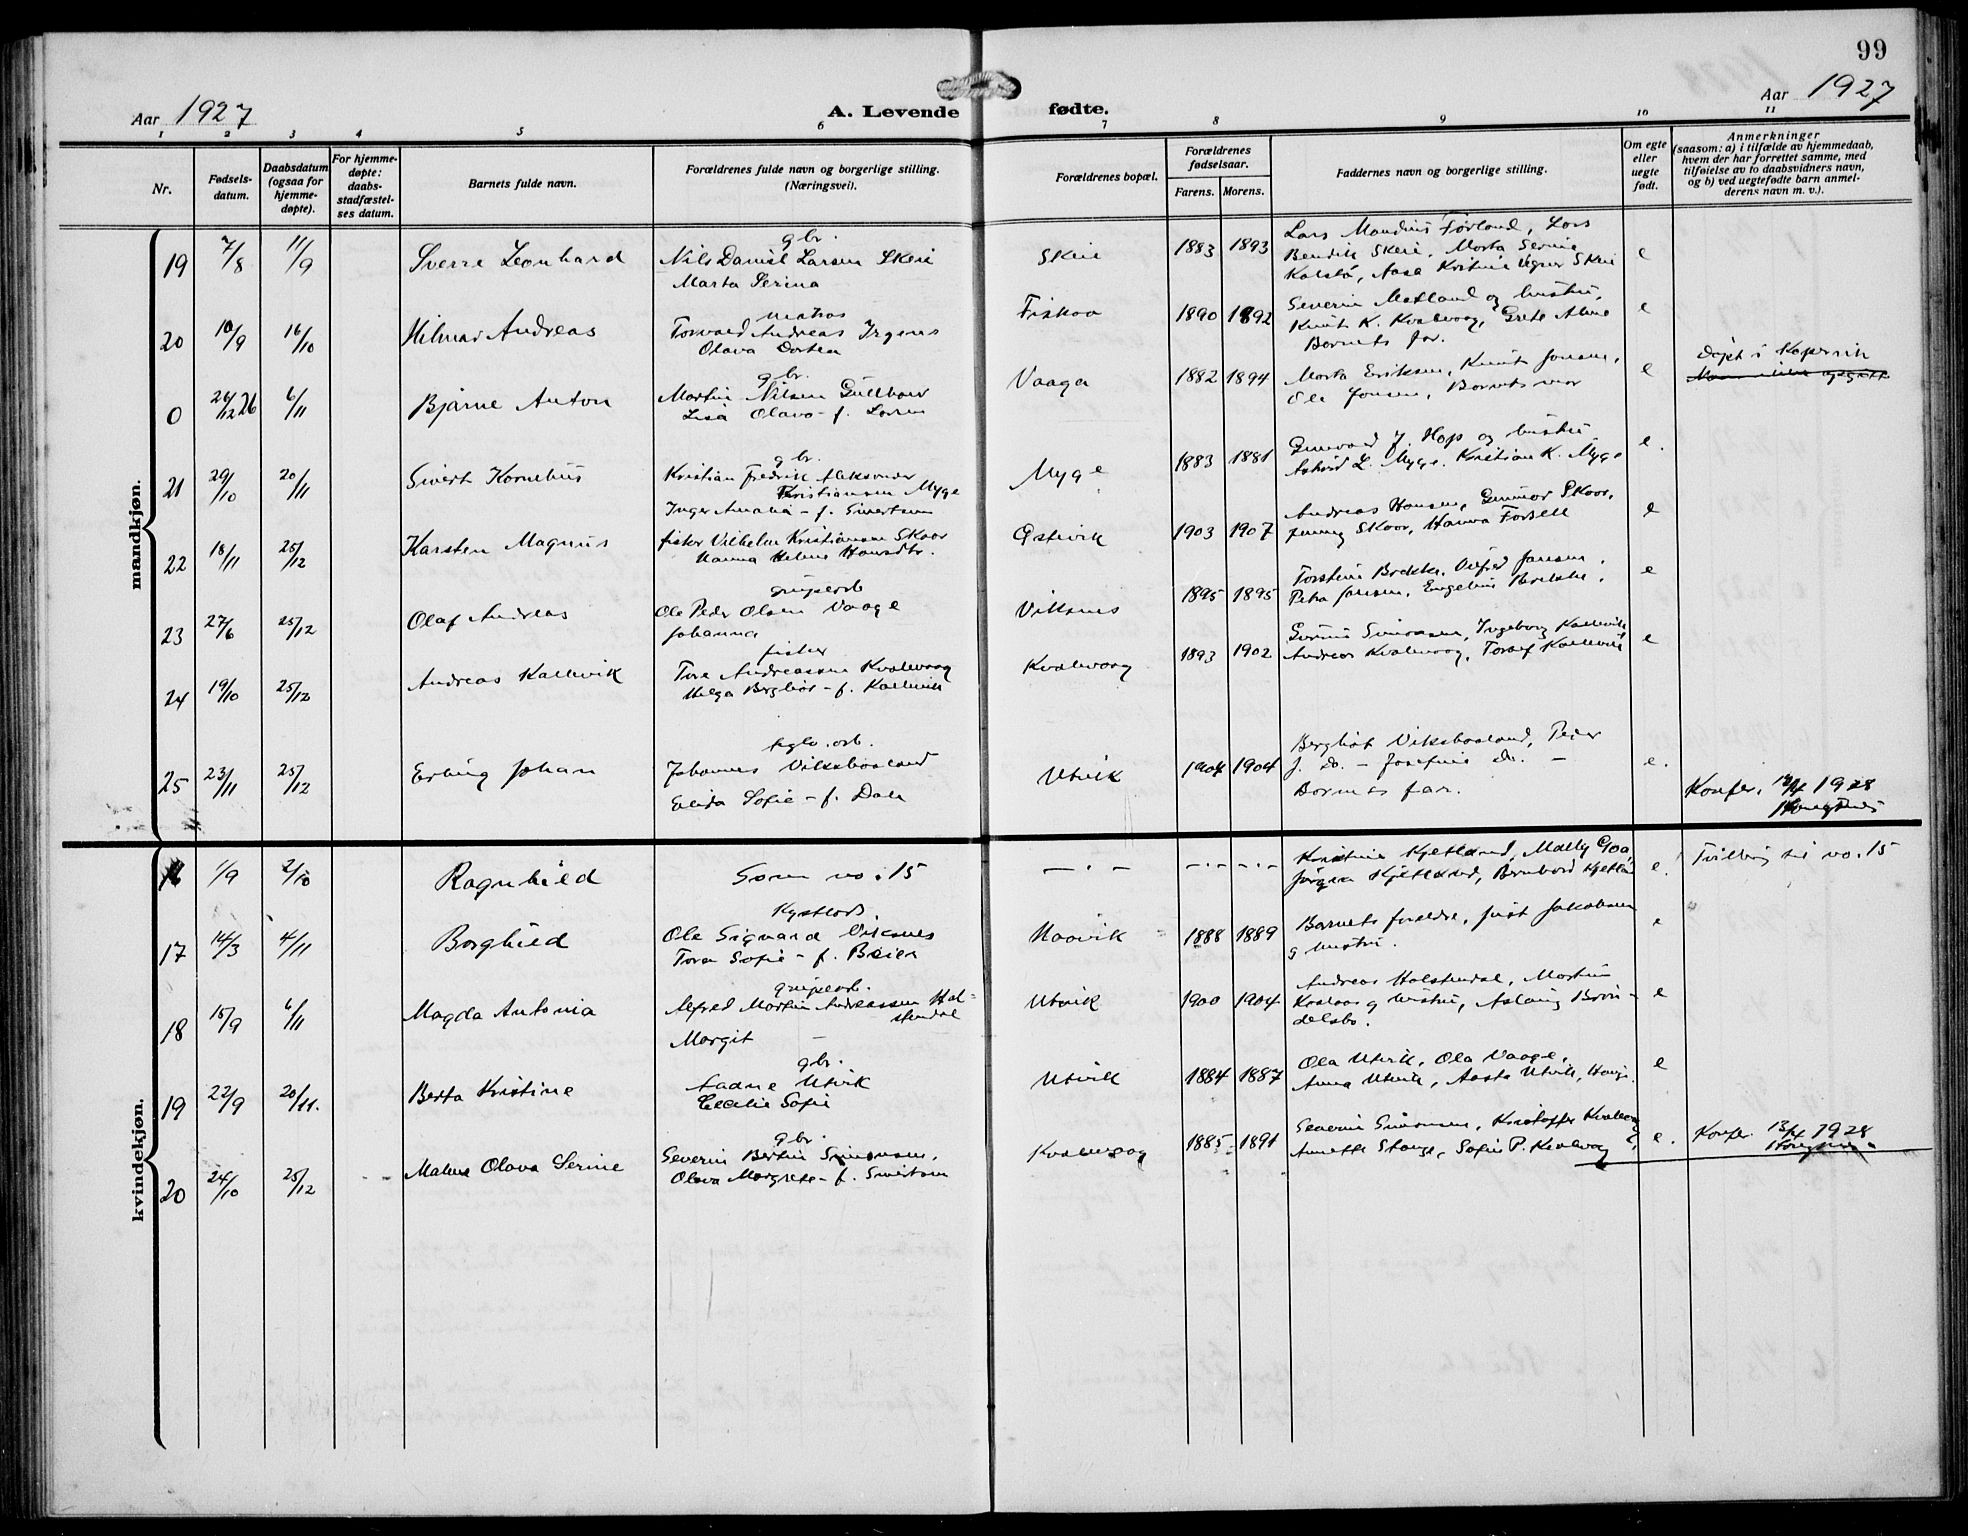 99
Aar 1927
A. Levende fødte.
Aar 1927
1 2 3 4 5 6 7 8 9 10 11
Nr.
Fødsels-
datum.
Daabsdatum
(ogsaa for
hjemme-
døpte).
For hjemme-
døpte:
daabs-
stadfæstel-
ses datum.
Barnets fulde navn.
Forældrenes fulde navn og borgerlige stilling.
(Næringsvei).
Forældrenes bopæl.
Forældrenes
fødselsaar.
Farens. Morens.
Faddernes navn og borgerlige stilling.
Om egte
eller
uegte
født.
Anmerkninger
(saasom: a) i tilfælde av hjemmedaab,
hvem der har forrettet samme, med
tilføielse av to daabsvidners navn,
og b) ved uegtefødte barn anmel-
derens navn m. v.).
mandkjøn.
19 7/8 11/9 Sverre Leonhard
gbr.
Nils Daniel Larsen Skeie
Marta Serina
Skeie 1883 1893
Lars Førland, Lars
Bendik Skeie, Marta
Kalstø, Aasa Skeie
e
20 10/9 16/10 Hilmar Andreas
matros
Torvald Andreas Irgens
Olava Dortea
Fiskaa 1890 1892
Severin Mætland og hustru,
Knut K. Kvalevaag, Grete
Barnets far.
e
0 24/12 26 6/11 Bjarne Anton
gbr.
Martin Nilsen
Lisa Olava - f.
Vaaga 1882 1894
Marta Eriksen, Knut Jonsen,
Ole Jonsen, Barnets mor
e
Døpt i Kopervik
21 29/10 20/11 Sivert Kornelius
gbr.
Kristian Fredrik Aleksander
Kristiansen Myge
Inger Amalia - f. Sivertsen
Myge 1883 1881
J. Hop og hustru
L. Myge. Kristian K. Myge
e.
22 18/11 25/12 Karsten Magnus
fisker Vilhelm Kristiansen Skaar
Hanna Helene Hansdtr.
Østevik 1903 1907
Andreas Hansen, Gunnar Skaar,
Jenny Skaar, Hanna
e
23 27/6 25/12 Olaf Andreas
grupearb
Ole Peder Olsen Vaage
Johanna
Viksnes 1895 1895
Torstein Brekke, Alfred Jansen,
Petra Jansen, Brekke.
e
24 19/10 25/12 Andreas Kallevik
fisker
Tore Andreassen Kvalevaag
Helga Bergliot - f. Kallevik
Kvalevaag 1893 1902
Simonsen, Ingeborg Kallevik
Andreas Kvalevaag, Kallevik
e
25 23/11 25/12 Erling Johan
arb.
Johannes Viksbaaland
Elida Sofie - f. Dale
Utvik 1904 1904
Bergliot Viksbaaland, Peder
J. Do. - Josefine Do. -
Barnets far.
e.
Konfer. 1928
kvindekjøn.
16 1/9 2/10 Ragnhild
Som no: 15
— . — — . — — . —
Kristine Kjetland, Mally
Kjetland, Kjetland
e.
Tvilling til no. 15
17 14/3 4/11 Borghild
Ole Sigvard Viksnes
Tora Sofie - f. Beier
Haavik 1888 1889
Barnets foreldre, Just Jakobsen
g hustru.
e
18 15/9 6/11 Magda Antonia
grupearb.
Alfred Martin Andreassen Hal-
stendal
Margit -
Utvik 1900 1904
Andreas Halstendal, Martin
g hustru, Aslaug Brøn-
delsbo.
e
19 22/9 20/11. Berta Kristine
gbr.
Aadne Utvik
Cecilie Sofie
Utvik 1884 1887
Ola Utvik, Ola Vaage,
Anna Utvik, Aasta Utvik,
e
20 24/10 25/12 Malene Olava Serine
gbr.
Severin Bertin Simonsen,
Olava Margrete - f. Sivertsen
Kvalevaag 1885 1891
Severin Simonsen, Kristoffer Kvalevaag
Annette Stange, Sofie P. Kvalevaag
e.
Konfer 1928